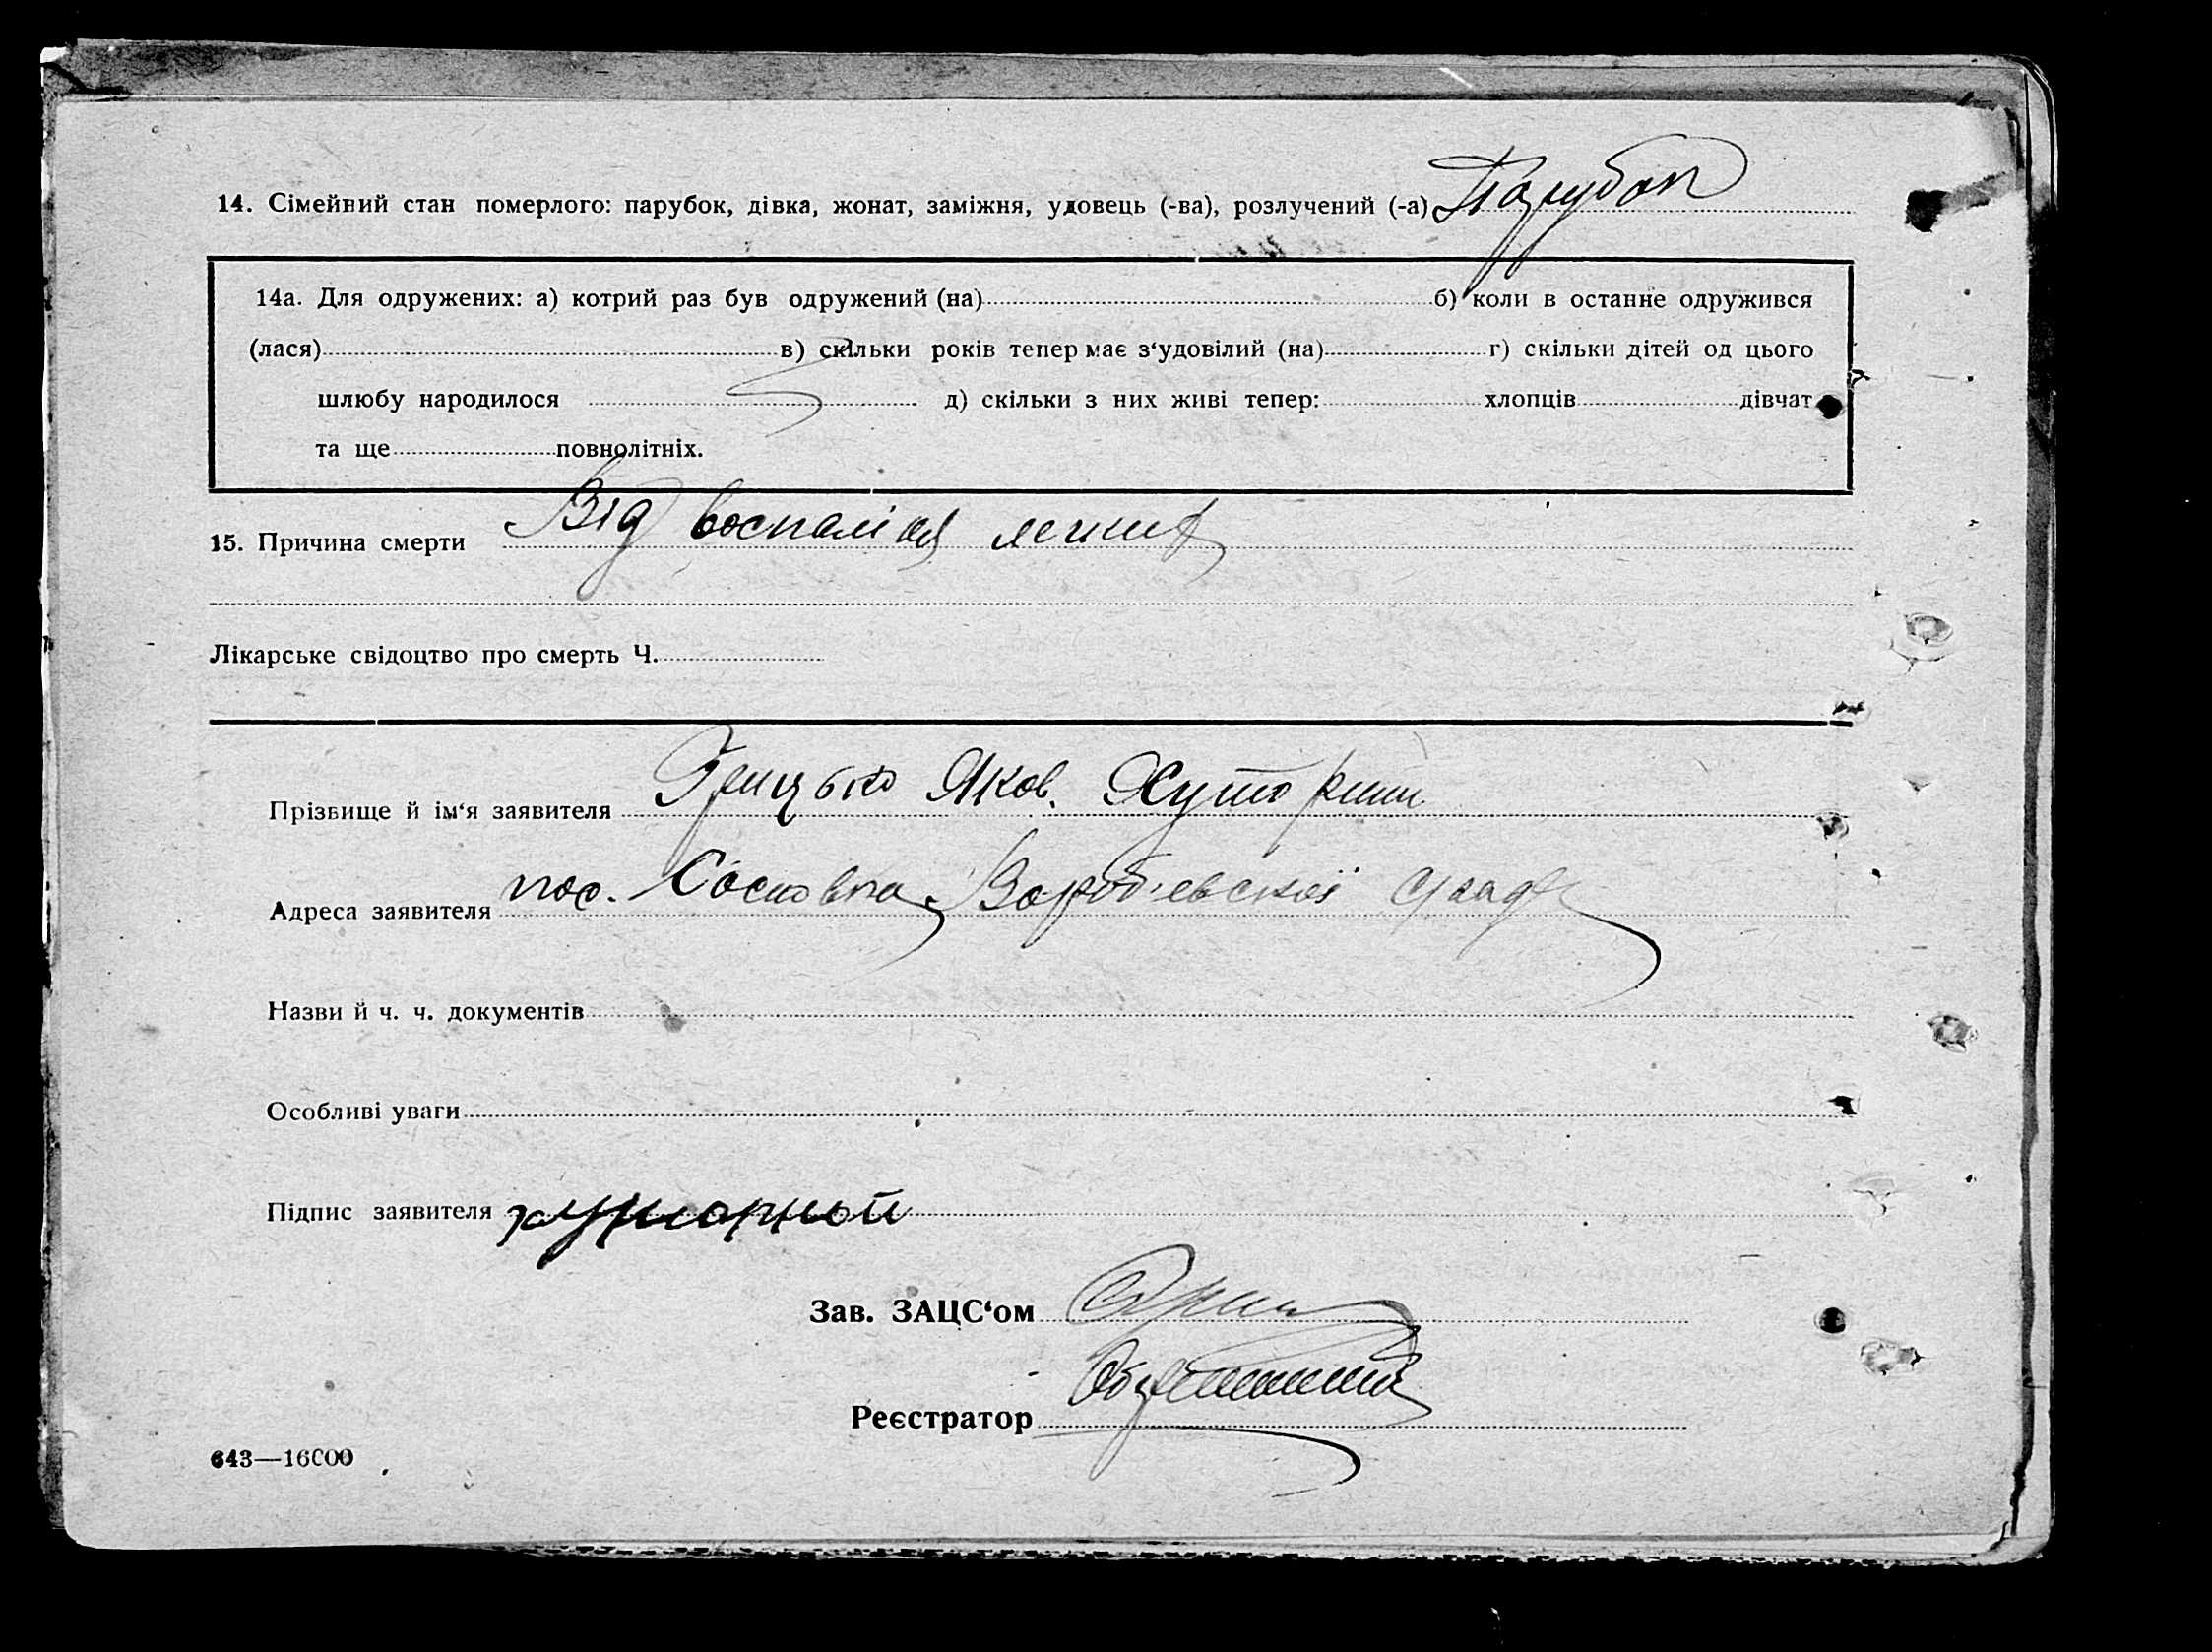 14. Сімейний стан померлого: парубок, дівка, жонат, заміжня, удовець (-ва), розлучений (-а) Парубок
14а. Для одружених: а) котрий раз був одружений (на) б) коли в останнє одружився
(лася) в) скільки років тепер має з‘удовілий (на) г) скільки дітей од цього
шлюбу народилося д) скільки з них живі тепер: хлопців дівчат
та ще повнолітніх.
15. Причина смерти Від воспалікя легких
Лікарське свідоцтво про смерть Ч.
Прізвище й ім‘я заявителя Грицько Яков.
Адреса заявителя пос. Сосновка
Назви й ч. ч. документів
Особливі уваги
Підпис заявителя хуторной
Зав. ЗАЦС‘ом
Реєстратор
643—16000